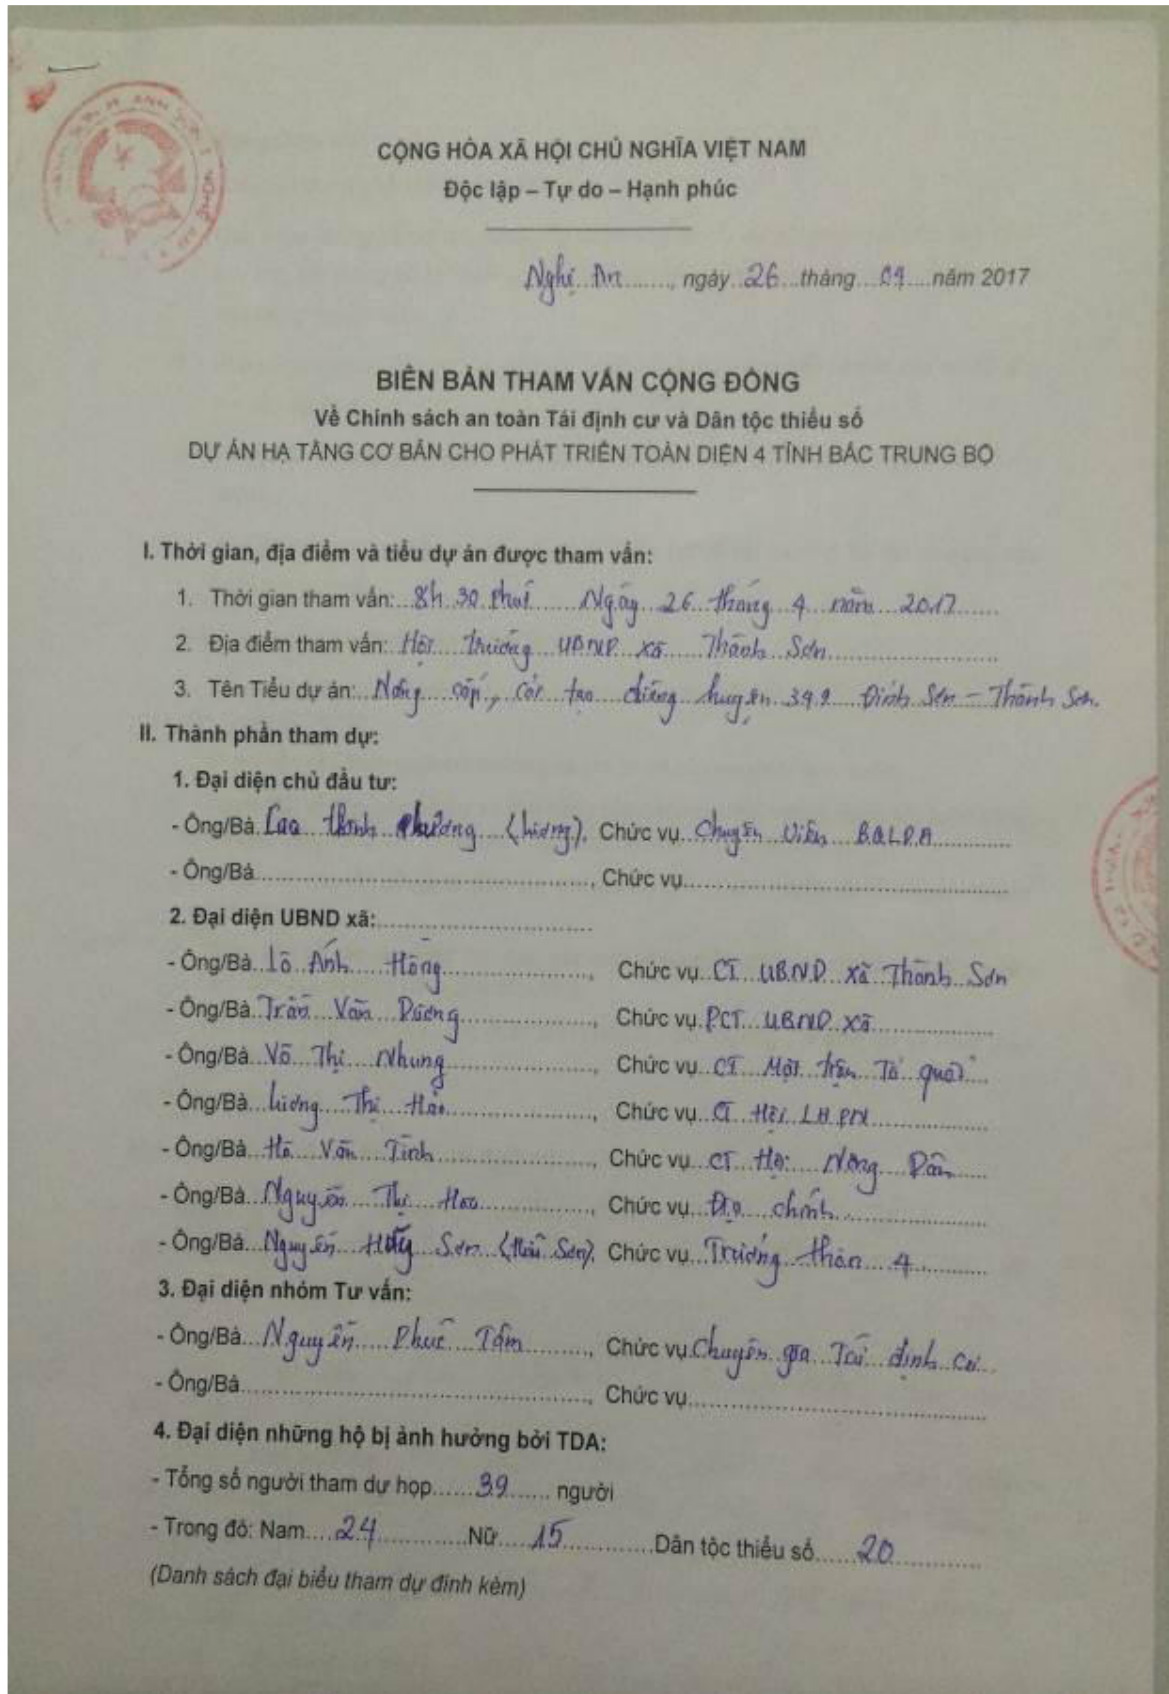 CỘNG HÒA XÃ HỘI CHỦ NGHĨA VIỆT NAM
Độc lập – Tự do – Hạnh phúc
Nghệ An, ngày 26 tháng 04 năm 2017
BIÊN BẢN THAM VẤN CỘNG ĐỒNG
Về Chính sách an toàn Tái định cư và Dân tộc thiểu số
DỰ ÁN HẠ TẦNG CƠ BẢN CHO PHÁT TRIỂN TOÀN DIỆN 4 TỈNH BẮC TRUNG BỘ
I. Thời gian, địa điểm và tiểu dự án được tham vấn:
1. Thời gian tham vấn: 8h 30 phút Ngày 26 tháng 4 năm 2017
2. Địa điểm tham vấn: Hội trường UBND xã Thành Sơn
3. Tên Tiểu dự án: Nâng cấp, cải tạo đường huyện 349 Đỉnh Sơn – Thành Sơn.
II. Thành phần tham dự:
1. Đại diện chủ đầu tư:
- Ông/Bà Cao Thanh (hương), Chức vụ Chuyên viên BQLDA
- Ông/Bà, Chức vụ
2. Đại diện UBND xã:
- Ông/Bà Lô Ánh Hồng, Chức vụ CT UBND xã Thành Sơn
- Ông/Bà Trần Văn Dương, Chức vụ PCT UBND xã
- Ông/Bà Võ Thị Nhung, Chức vụ CT Mặt trận Tổ quốc
- Ông/Bà Lương Thị Hảo, Chức vụ CT Hội LHPN
- Ông/Bà Hà Văn Tình, Chức vụ CT Hội Nông Dân
- Ông/Bà Nguyễn Thị Hoa, Chức vụ Địa chính
- Ông/Bà Nguyễn Sơn Sơn), Chức vụ Trưởng thôn 4
3. Đại diện nhóm Tư vấn:
- Ông/Bà Nguyễn Phúc Tâm, Chức vụ Chuyên gia Tái định cư
- Ông/Bà, Chức vụ
4. Đại diện những hộ bị ảnh hưởng bởi TDA:
- Tổng số người tham dự họp 39 người
- Trong đó: Nam 24 Nữ 15 Dân tộc thiểu số 20
(Danh sách đại biểu tham dự đính kèm)